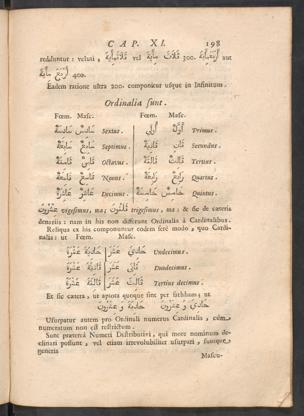 CAP. XI. 198
redduntur: veluti, ثَلَاثُمِأَيَةٍ vel ثَلَاثُ مِأَيَةٍ 300. أَرْبَعُمِأَيَةٍ aut
أَرْبَعُ مِأَيَةٍ 400.
Eadem ratione ultra 300. componitur usque in Infinitum.
Ordinalia sunt.
Fœm. Masc. Fœm. Masc.
سَادِسَةٌ سَادِسٌ Sextus. أُولَى أَوَّلُ Primus.
سَابِعَةٌ سَابِعٌ Septimus. ثَانِيَةٌ ثَانٍ Secundus.
ثَامِنَةٌ ثَامِنٌ Octavus. ثَالِثَةٌ ثَالِثٌ Tertius.
تَاسِعَةٌ تَاسِعٌ Nonus. رَابِعَةٌ رَابِعٌ Quartus.
عَاشِرَةٌ عَاشِرٌ Decimus. خَامِسَةٌ خَامِسٌ Quintus.
عِشْرُونَ vigesimus, ma; ثَلَاثُونَ trigesimus, ma: & sic de cæteris
denariis: nam in his non differunt Ordinalia à Cardinalibus.
Reliqua ex his componuntur eodem ferè modo, quo Cardi-
nalia: ut Fœm. Masc.
حَادِيَةَ عَشْرَةَ حَادِيَ عَشَرَ Undecimus.
ثَانِيَةَ عَشْرَةَ ثَانِيَ عَشَرَ Duodecimus.
ثَالِثَةَ عَشْرَةَ ثَالِثَ عَشَرَ Tertius decimus.
Et sic cætera, ut aptota quoque sint per fathham; ut
حَادِيَ وَعِشْرُونَ حَادِيَةَ وَعِشْرُونَ
Usurpatur autem pro Ordinali numerus Cardinalis, cùm
numeratum non est restrictum.
Sunt præterea Numeri Distributivi, qui more nominum de-
clinari possunt, vel etiam irrevolubiliter usurpari, suntque
generis
Mascu-